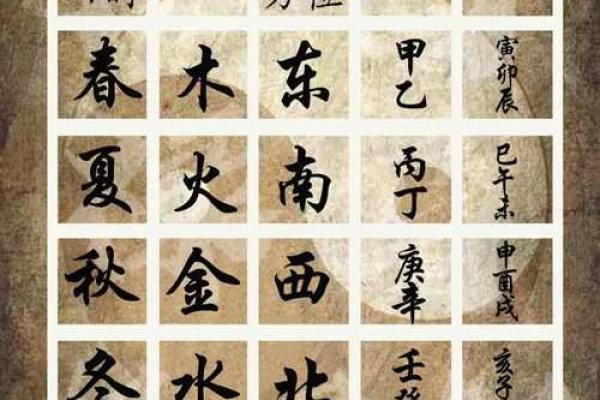 方位
春 木 东 甲乙 寅卯辰
夏 火 南 丙丁 巳午未
秋 金 西 庚辛 申酉戌
冬 水 北 壬癸 亥子